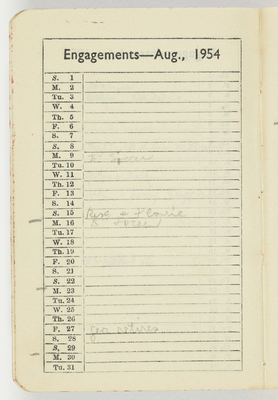 Engagements—Aug., 1954
S. 1
M. 2
Tu. 3
W. 4
Th. 5
F. 6
S. 7
S. 8
M. 9
Tu. 10
W. 11
Th. 12
F. 13
S. 14
S. 15
M. 16
Tu. 17
W. 18
Th. 19
F. 20
S. 21
S. 22
M. 23
Tu. 24
W. 25
Th. 26
F. 27 retires
S. 28
S. 29
M. 30
Tu. 31